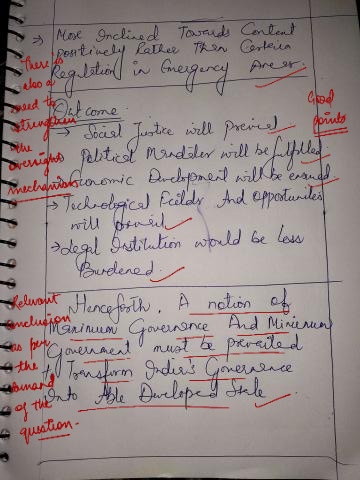 → More Inclined Towards Content
Positively Rather Then Certain
Regulation in Emergency Areas.
There is
also a
need to
strengthen
the
oversight
mechanism
Good
points
Outcome
→ Social Justice will Prevail
Political Mandate will be fulfilled
→ Economic Development will be ensured
→ Technological And Opportunities
will prevail
→ Legal Institution would be Less
Burdened.
Relevant
conclusion
as per
the
demand
of the
question.
Henceforth, A notion of
Maximum Governance And Minimum
Government must be prevailed
to Transform India's Governance
Into Able Developed State